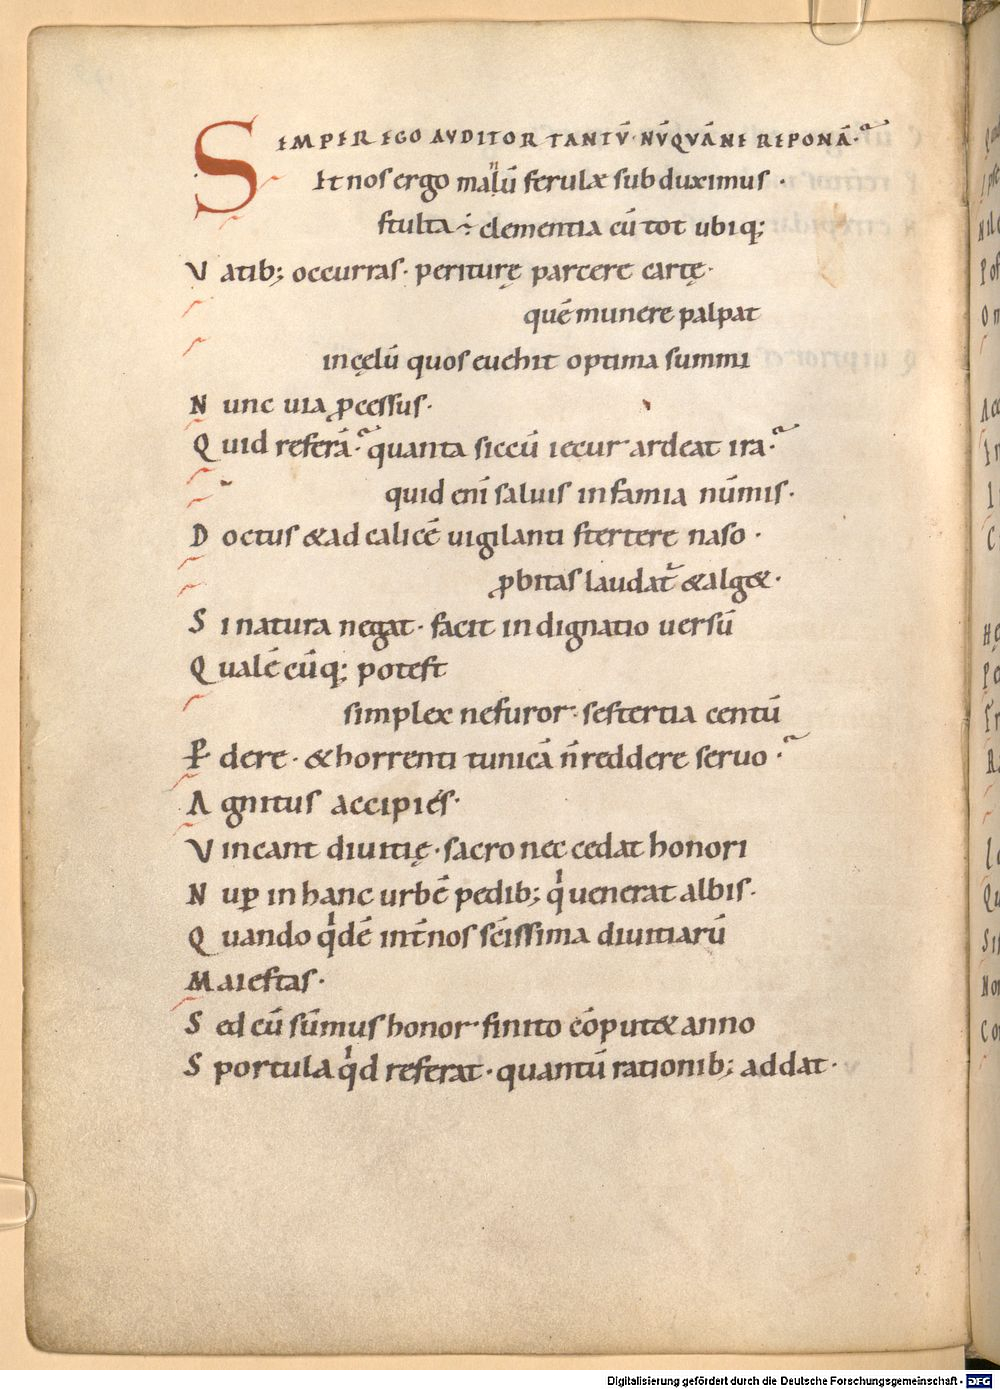 SEMPER EGO AVDITOR TANTŪ· NŪQUĀNE REPONĀ·
Et nos ergo malū ferulæ subduximus ·
stulta ÷ clementia cū tot ubiq;
Vatib; occurras· periturę parcere cartę·
quē munere palpat
incęlū quos euehit optima summi
Nunc uia ꝓcessus·
Quid referā· quanta siccū iecur ardeat ira·
quid eni saluis infamia nūmis·
Doctus & ad calicē uigilanti stertere naso ·
ꝓbitas laudat᷑ & alg&·
Si natura negat· facit indignatio uersū
Qualēcūq; potest
simplex nefuror· sestertia centū
Ꝑdere· & horrenti tunicā n̄ reddere seruo ·
Agnitus accipies·
Vincant diuitię· sacro nec cedat honori
Nuꝑ in hanc urbē pedib; qͥ uenerat albis·
Quando qͥdē int̄ nos scīssima diuitiarū
Maiestas·
Sed cū sūmus honor finito cōput& anno
Sportula qͥd referat· quantū rationib; addat·
Digitalisierung gefördert durch die Deutsche Forschungsgemeinschaft - DFG